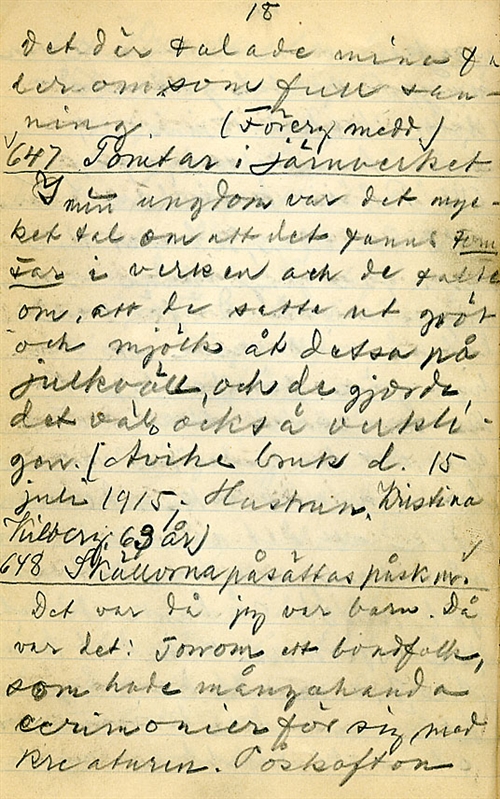 18
Det där talade mina fö
der om, som full san-
ning. (Föreg. medd.)
647 Tomtar i järnverket
I min ungdom var det myc-
ket tal om att det fanns tom
tar i verken och de talte
om, att de satte ut gröt
och mjölk åt dessa på
julkväll, och de gjorde,
det väl också verkli-
gen. [Avike bruk d. 15
juli 1915; Hustrun, Kristina
63 år)
648 Skällorna påsättas påskm.
Det var då jag var barn. Då
var det: ett bondfolk,
som hade mångahanda
cerimonier för sig med
kreaturen. Påskafton